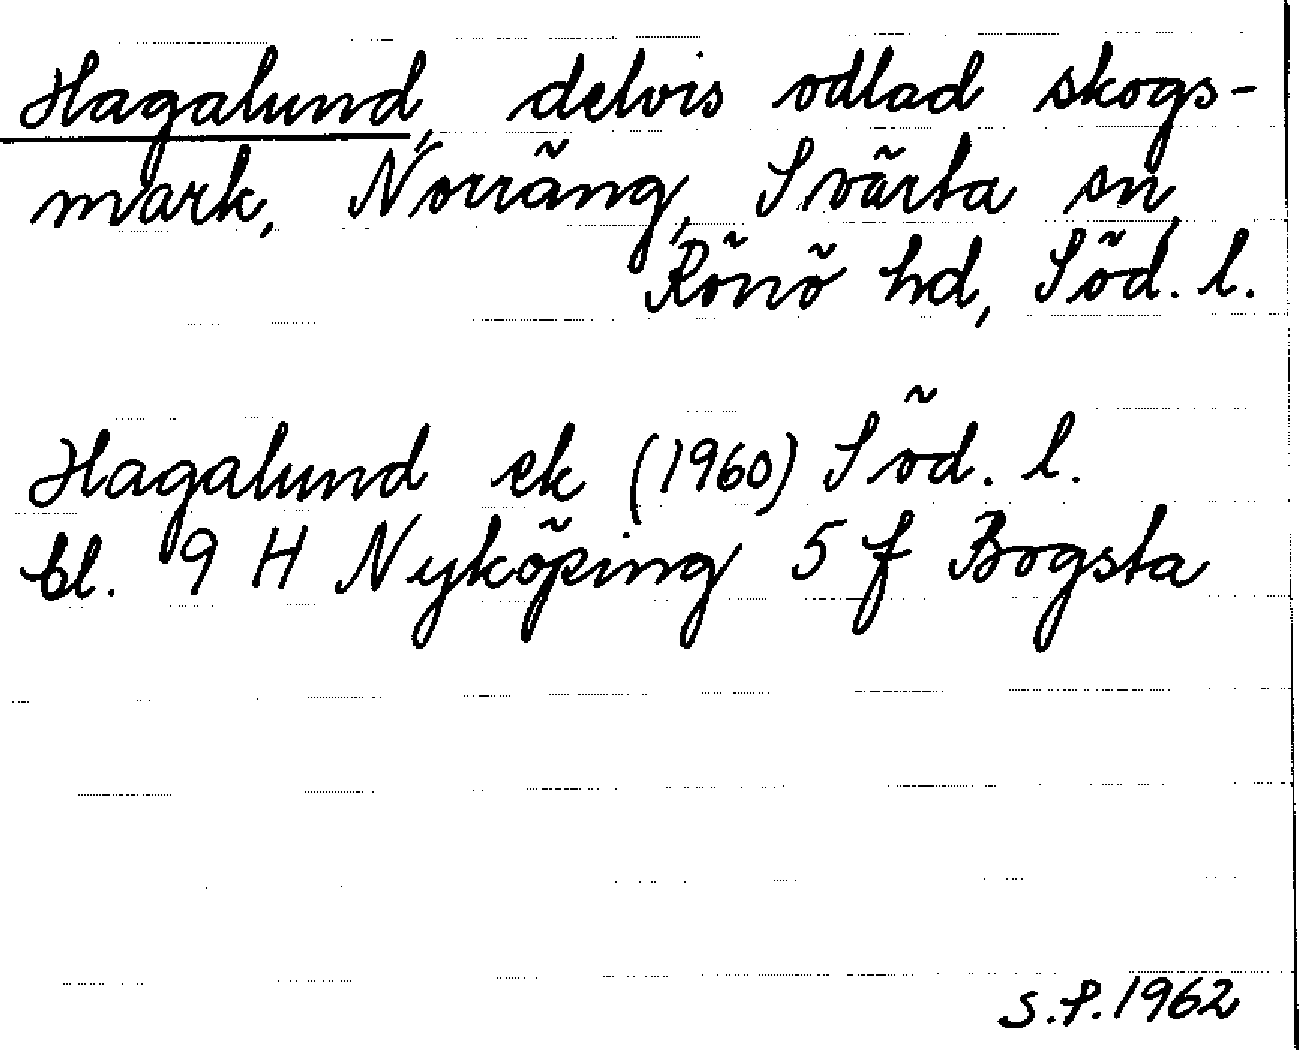 Hagalund, delvis odlad skogs-
mark, Norräng, Svärta sn,
Rönö hd, Söd. l.
Hagalund ek (1960) Söd. l.
bl. 9 H Nyköping 5 f Bogsta
S.P. 1962